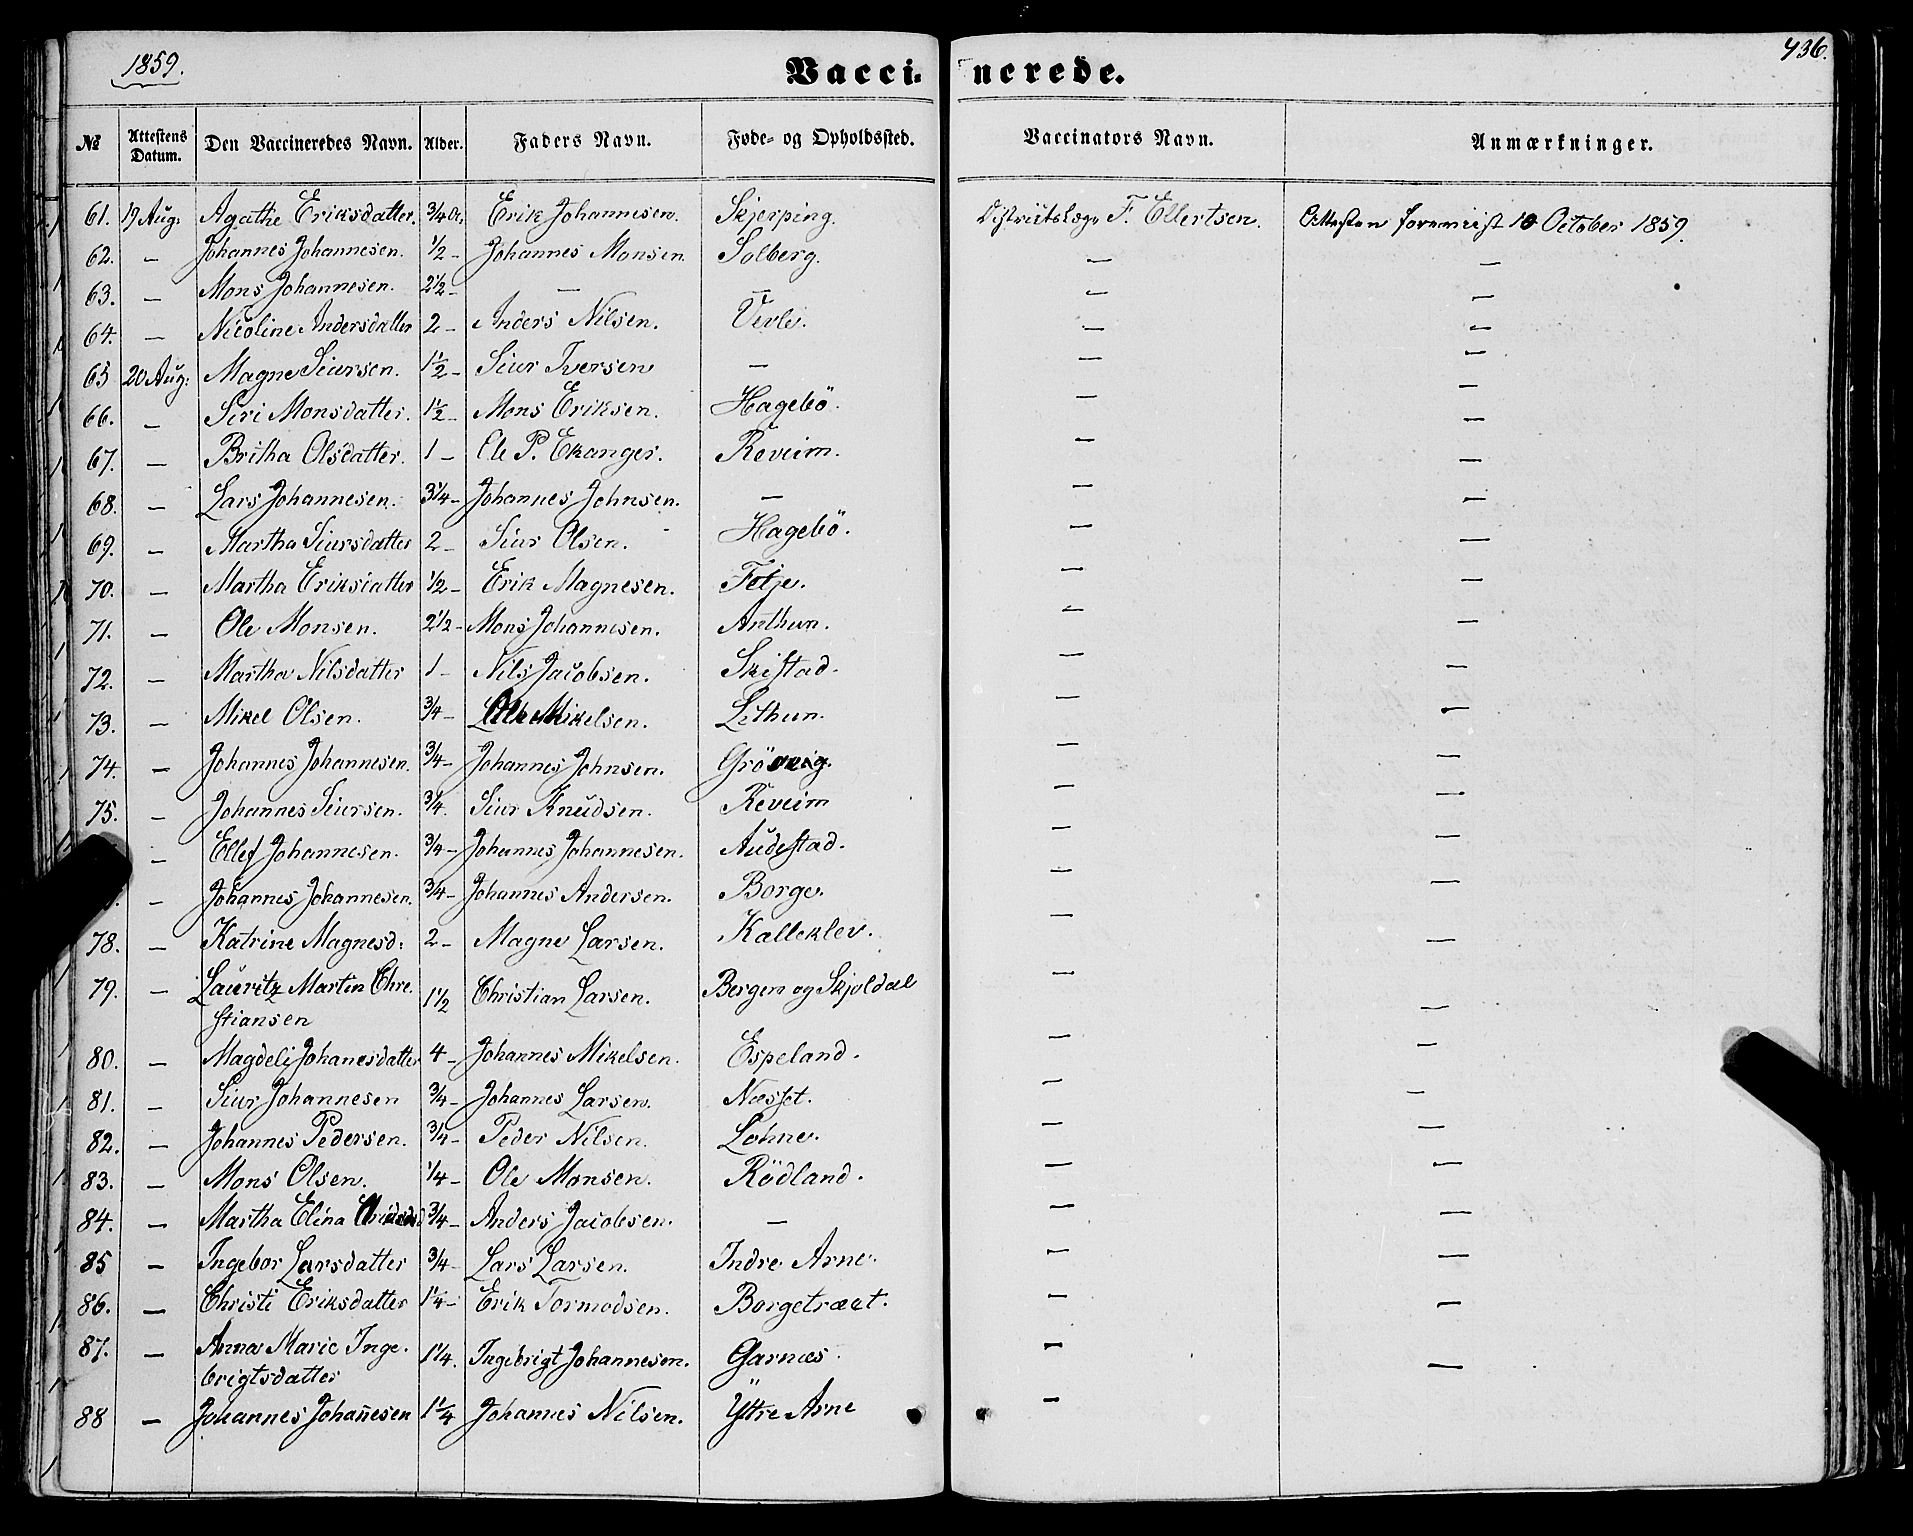 1859.
Vaccinerede.
436.
№ Attestens Datum. Den Vaccineredes Navn. Alder. Faders Navn. Føde- og Opholdssted. Vaccinators Navn. Anmærkninger.
61. 19 Aug: Agathe Eriksdatter. 3/4 Erik Johannesen. Skjerping. Districtslæge F. Ellertsen. Attesten forevist 10 October 1859.
62. — Johannes Johannesen. 1/2 – Johannes Monsen. Solberg. — —
63. — Mons Johannesen. 2 1/2 – — — — —
64. — Nicoline Andersdatter 2 – Anders Nilsen. Verle. — —
65 20 Aug: Magne Siursen. 1 1/2 – Siur Iversen — — —
66. — Siri Monsdatter. 1 1/2 – Mons Eriksen. Hagebö. — —
67. — Britha Olsdatter. 1 – Ole P. Ekanger. Reveim. — —
68. — Lars Johannesen. 3 1/4 – Johannes Johnsen. — — —
69. — Martha Siursdatter 2 – Siur Olsen. Hagebö. — —
70. — Martha Eriksdatter 1/2 – Erik Magnesen. Fotje. — —
71. — Ole Monsen. 2 1/2 – Mons Johannesen. Anthun. — —
72. — Martha Nilsdatter 1 – Nils Jacobsen. Skistad. — —
73. — Mikel Olsen. 3/4 – Ole Mikelsen. Lethun. — —
74. — Johannes Johannesen. 3/4 – Johannes Johnsen. Grösvig. — —
75. — Johannes Siursen. 3/4. Siur Knudsen. Reveim — —
— Ellef Johannesen. 3/4 – Johannes Johannesen. Audestad. — —
— Johannes Johannesen. 3/4 – Johannes Andersen. Borge. — —
78. — Katrine Magnesd: 2 – Magne Larsen. Kalleklev. — —
79. — Lauritz Martin Chre. 1 1/2 Christian Larsen. Bergen og Skjoldal — —
stiansen
80. — Magdeli Johanesdatter 4 – Johannes Mikelsen. Espeland. — —
81. — Siur Johannesen 3/4 – Johannes Larsen. Næsset. — —
82. — Johannes Pedersen. 3/4 – Peder Nilsen. Lohne. — —
83. — Mons Olsen. 1/4 – Ole Monsen. Rödland. — —
84. — Martha Elina 3/4 – Anders Jacobsen. — — —
85 — Ingebor Larsdatter 3/4 – Lars Larsen. Indre Arne. — —
86. — Christi Eriksdatter 1 1/4 – Erik Tormodsen. Borgetræet. — —
87. — Anna Marie Inge. 1 1/4. Ingebrigt Johannesen. Garnæs. — —
brigtsdatter
88 — Johannes Johañesen 1 1/4 Johannes Nilsen. Ytre Arne —